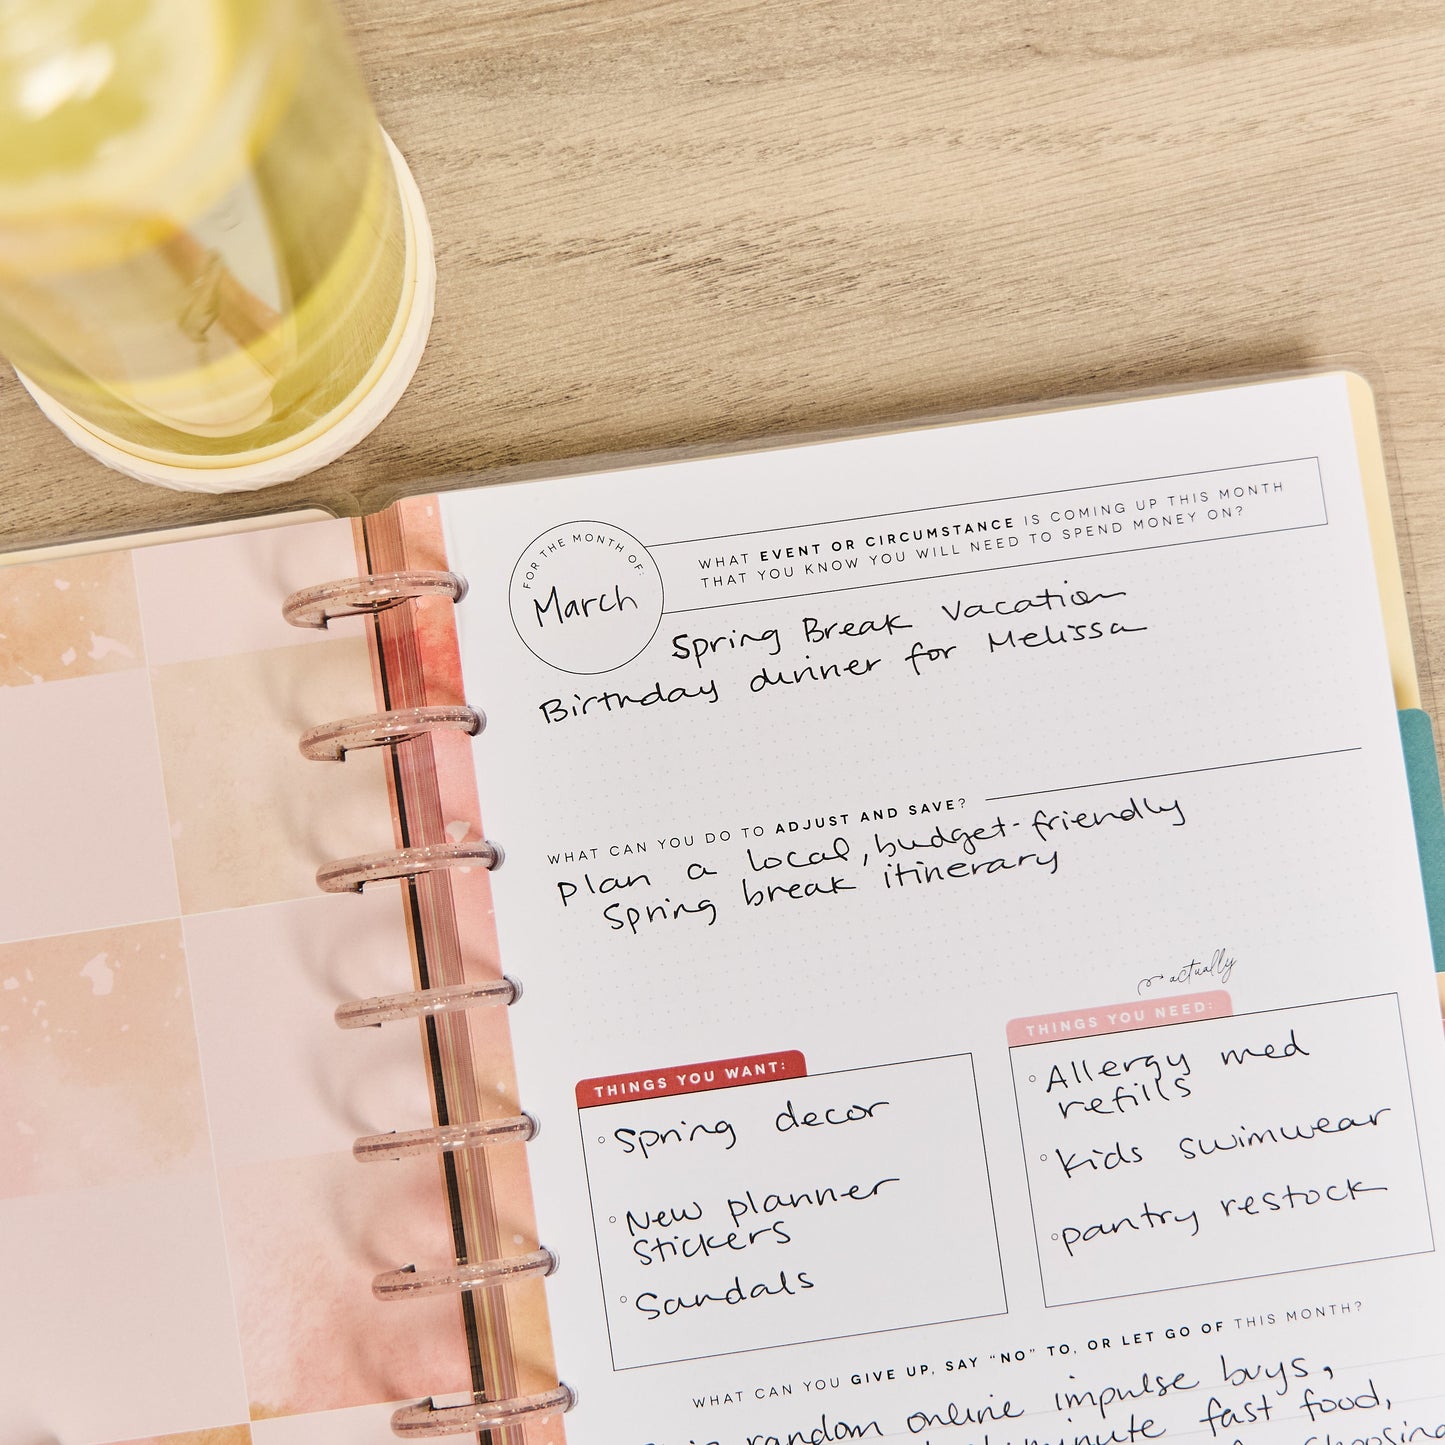 FOR THE MONTH OF:
March
WHAT EVENT OR CIRCUMSTANCE IS COMING UP THIS MONTH
THAT YOU KNOW YOU WILL NEED TO SPEND MONEY ON?
Spring Break Vacation
Birthday dinner for Melissa
WHAT CAN YOU DO TO ADJUST AND SAVE?
plan a local, budget-friendly
Spring break itinerary
THINGS YOU WANT:
Spring decor
New planner
Stickers
Sandals
actually
THINGS YOU NEED:
Allergy med
refills
kids swimwear
pantry restock
WHAT CAN YOU GIVE UP, SAY "NO" TO, OR LET GO OF THIS MONTH?
random online impulse buys,
minute fast food,
choosing